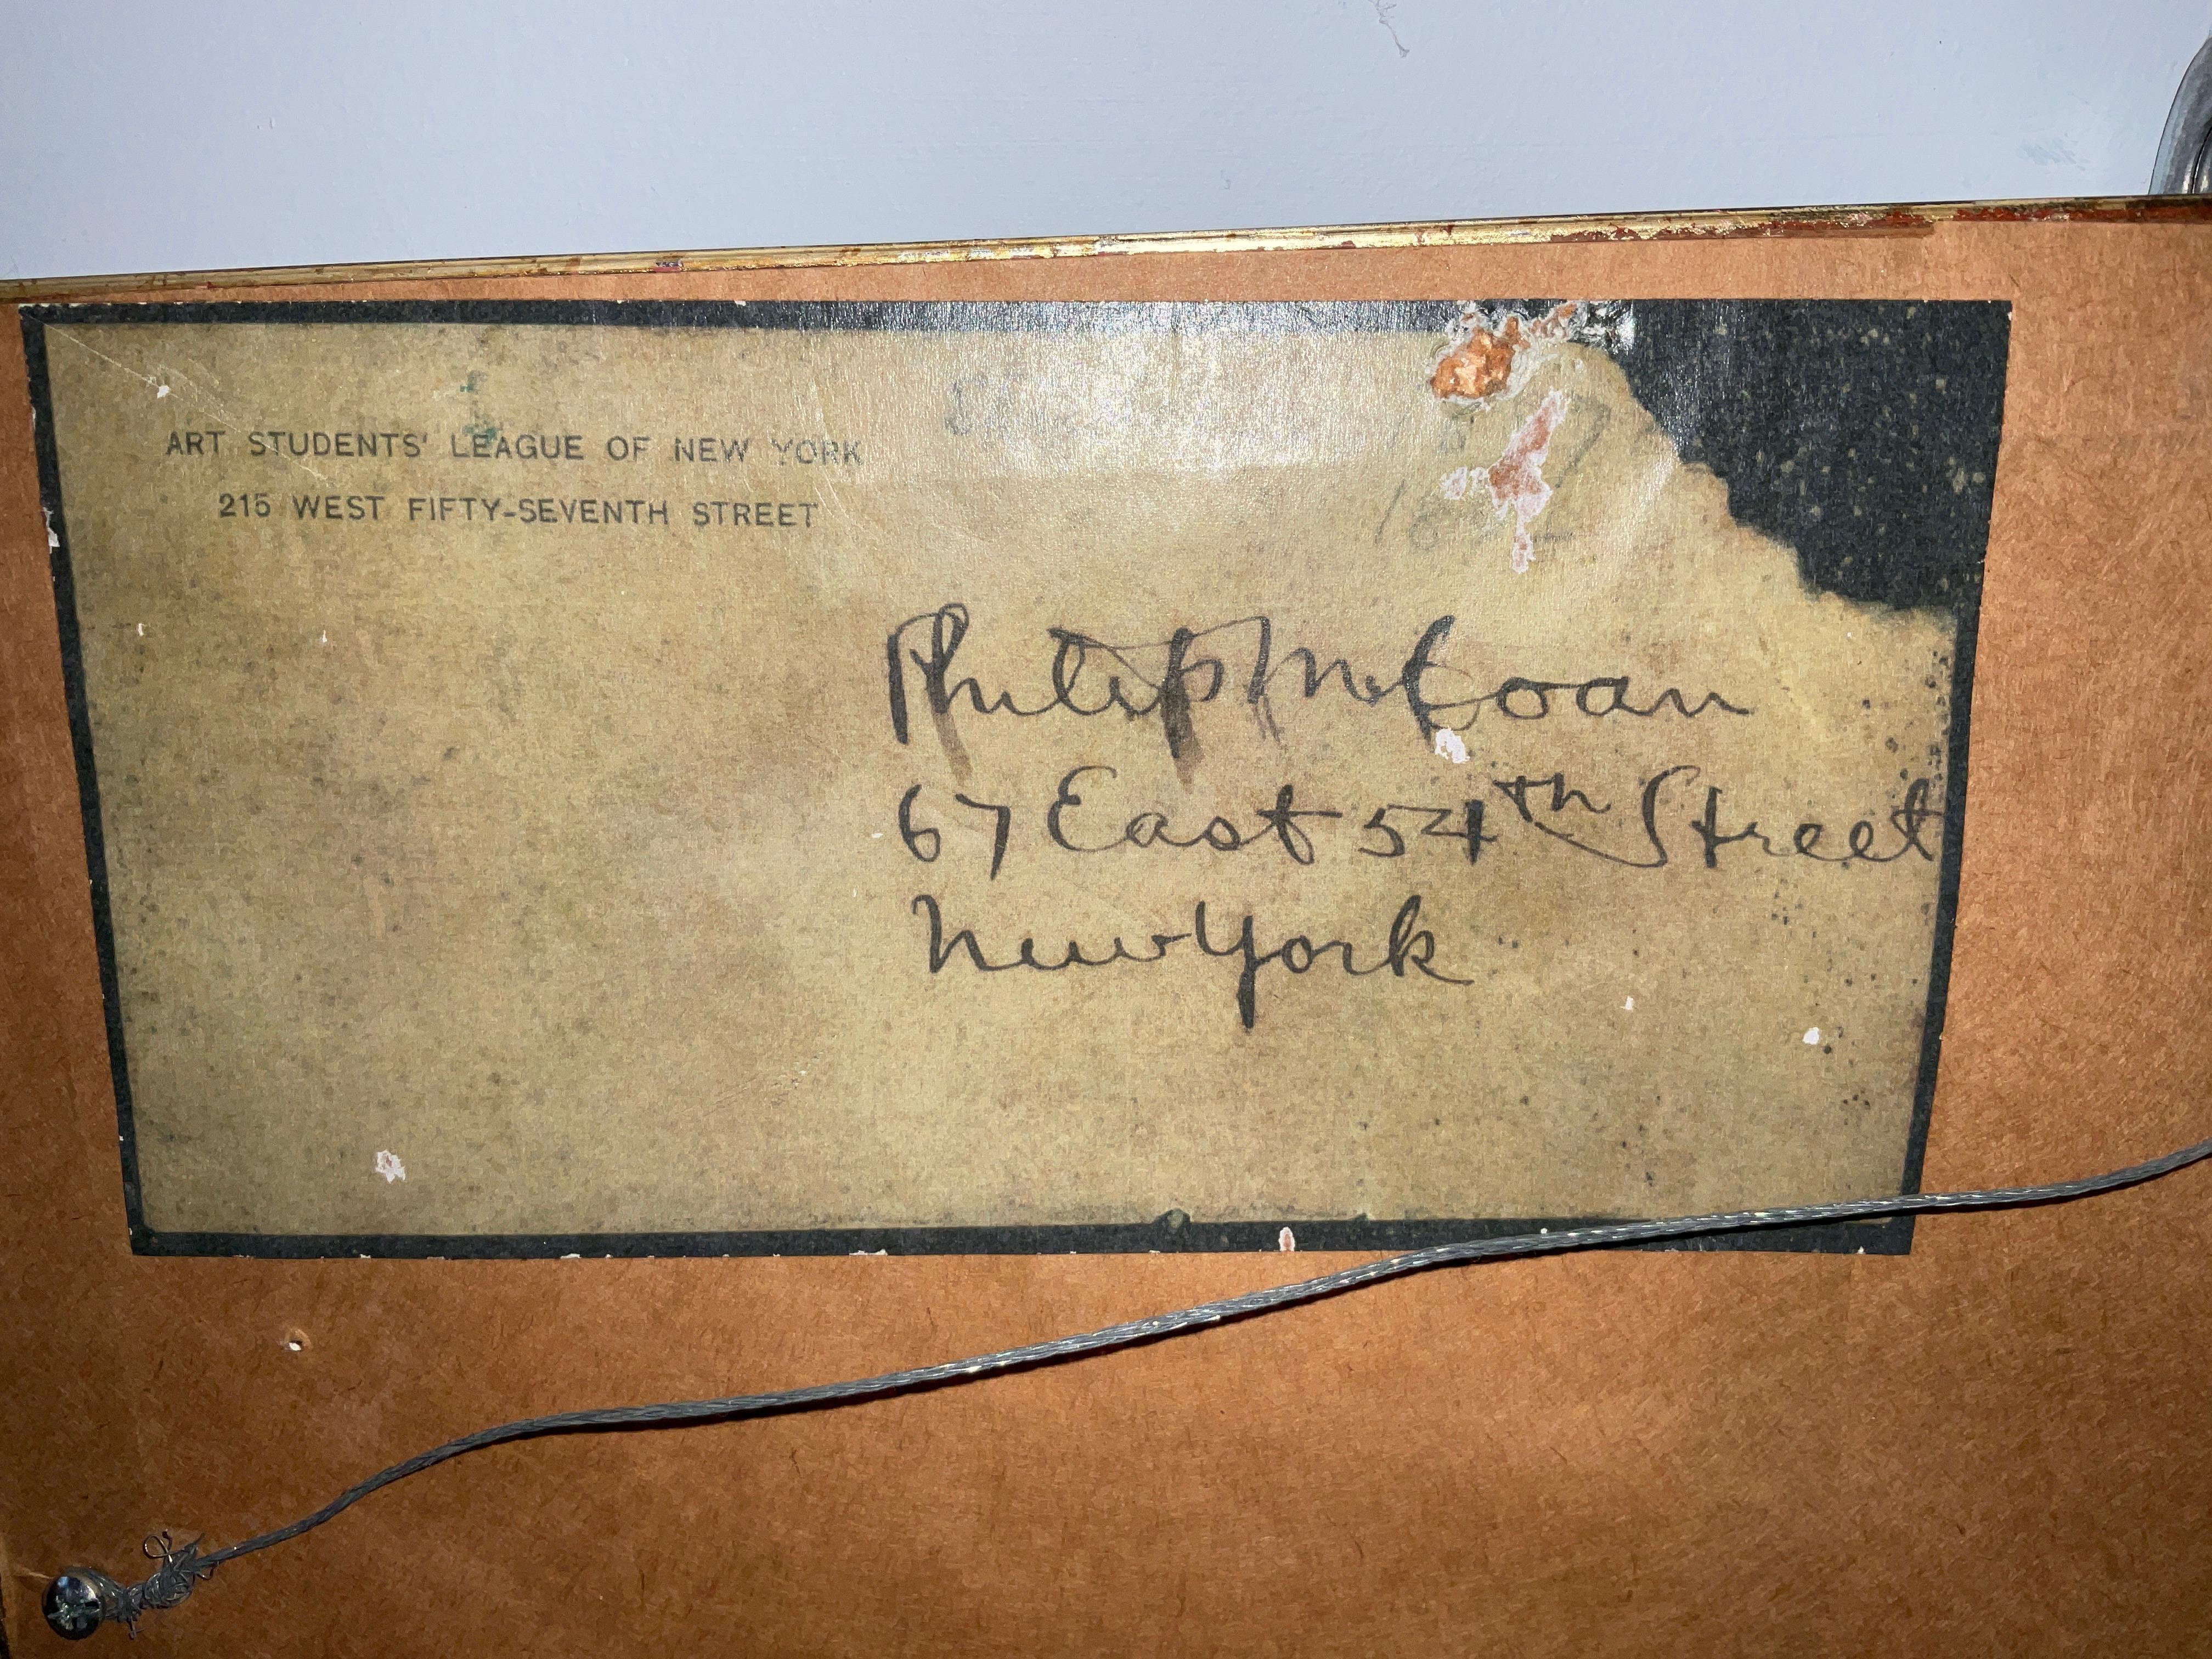 ART STUDENTS' LEAGUE OF NEW YORK
215 WEST FIFTY-SEVENTH STREET
Philip McCoan
67 East 54th Street
New York